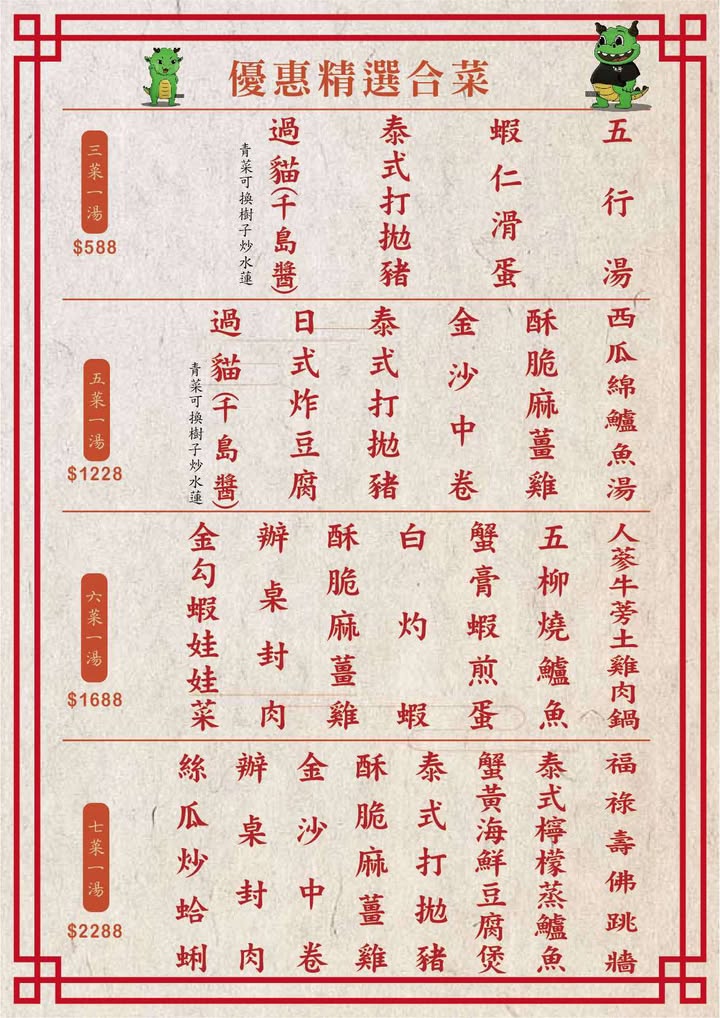 優惠精選合菜
五行湯
蝦仁滑蛋
泰式打拋豬
過貓(千島醬)
青菜可換樹子炒水蓮
三菜一湯
$588
西瓜綿鱸魚湯
酥脆麻薑雞
金沙中卷
泰式打拋豬
日式炸豆腐
過貓(千島醬)
青菜可換樹子炒水蓮
五菜一湯
$1228
人蔘牛蒡土雞肉鍋
五柳燒鱸魚
蟹膏蝦煎蛋
白灼蝦
酥脆麻薑雞
辦桌封肉
金勾蝦娃娃菜
六菜一湯
$1688
福祿壽佛跳牆
泰式檸檬蒸鱸魚
蟹黃海鮮豆腐煲
泰式打拋豬
酥脆麻薑雞
金沙中卷
辦桌封肉
絲瓜炒蛤蜊
七菜一湯
$2288